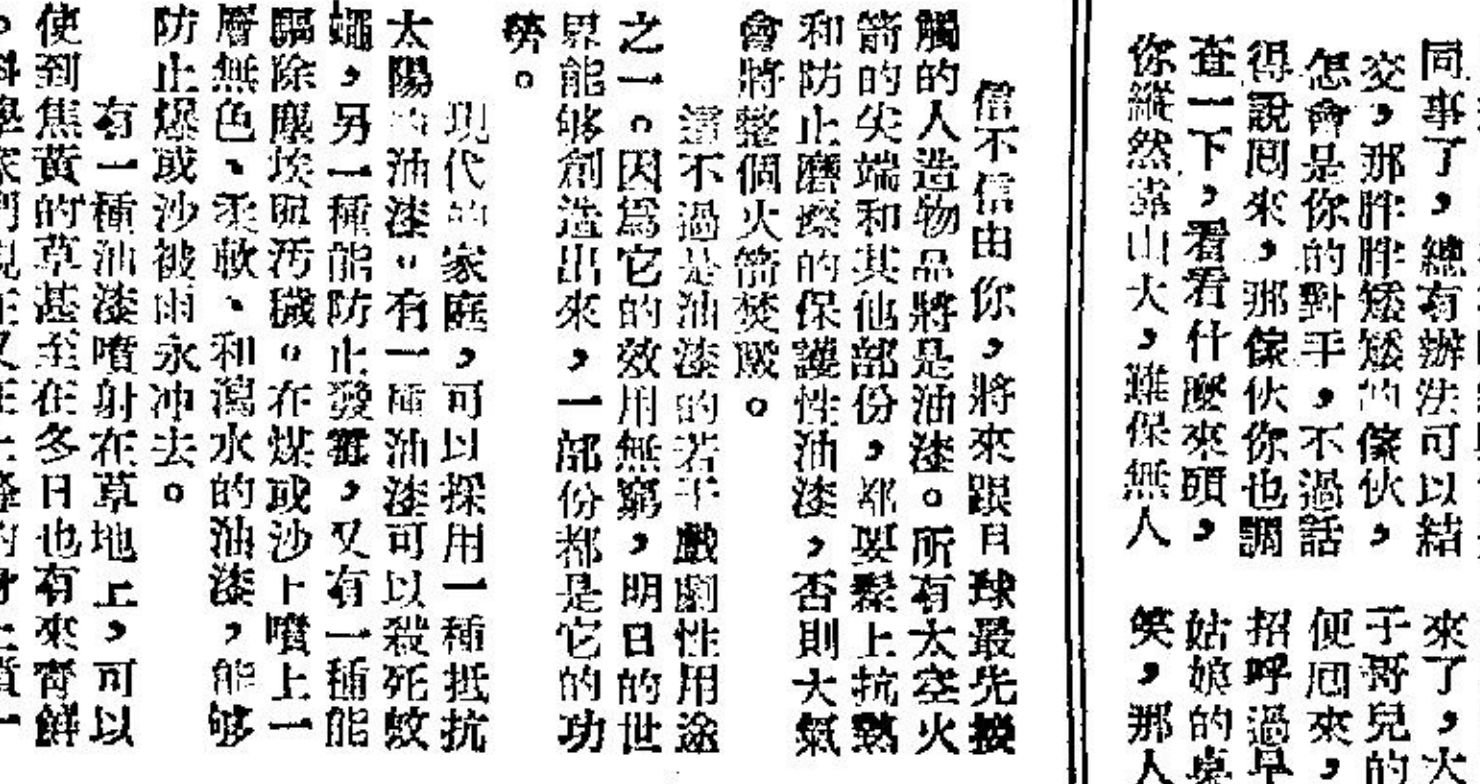 同事了，總有辦法可以結
交，那胖胖矮矮的傢伙，
怎會是你的對手，不過話
得說囘來，那傢伙你也調
查一下，看看什麼來頭，
你縱然靠山大，誰保無人
來了，大
子哥兒的
便囘來，
招呼過早
姑娘的桌
笑，那人
信不信由你，將來跟月球最先接
觸的人造物品將是油漆。所有太空火
箭的尖端和其他部份，都要髹上抗熱
和防止磨擦的保護性油漆，否則大氣
會將整個火箭焚毀。
這不過是油漆的若干戲劇性用途
之一。因爲它的效用無窮，明日的世
界能够創造出來，一部份都是它的功
勞。
現代的家庭，可以採用一種抵抗
太陽的油漆。有一種油漆可以殺死蚊
蠅，另一種能防止發霉，又有一種能
驅除塵埃與污穢。在煤或沙上噴上一
層無色、柔軟、和瀉水的油漆，能够
防止爆或沙被雨水冲去。
有一種油漆噴射在草地上，可以
使到焦黃的草甚至在冬日也有來靑鮮